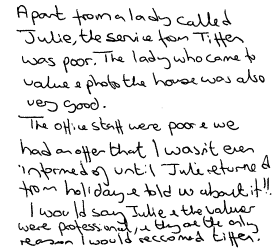 Apart from a lady called
Julie, the service from Tiffen
was poor. The lady who came to
value & photo the house was also
very good.
The office staff were poor & we
had an offer that I wasn't even
informed of until Julie returned
from holiday & told us about it!!
I would say Julie & the valuer
were professional, & they are the only
reason I would reccomed tiffen.